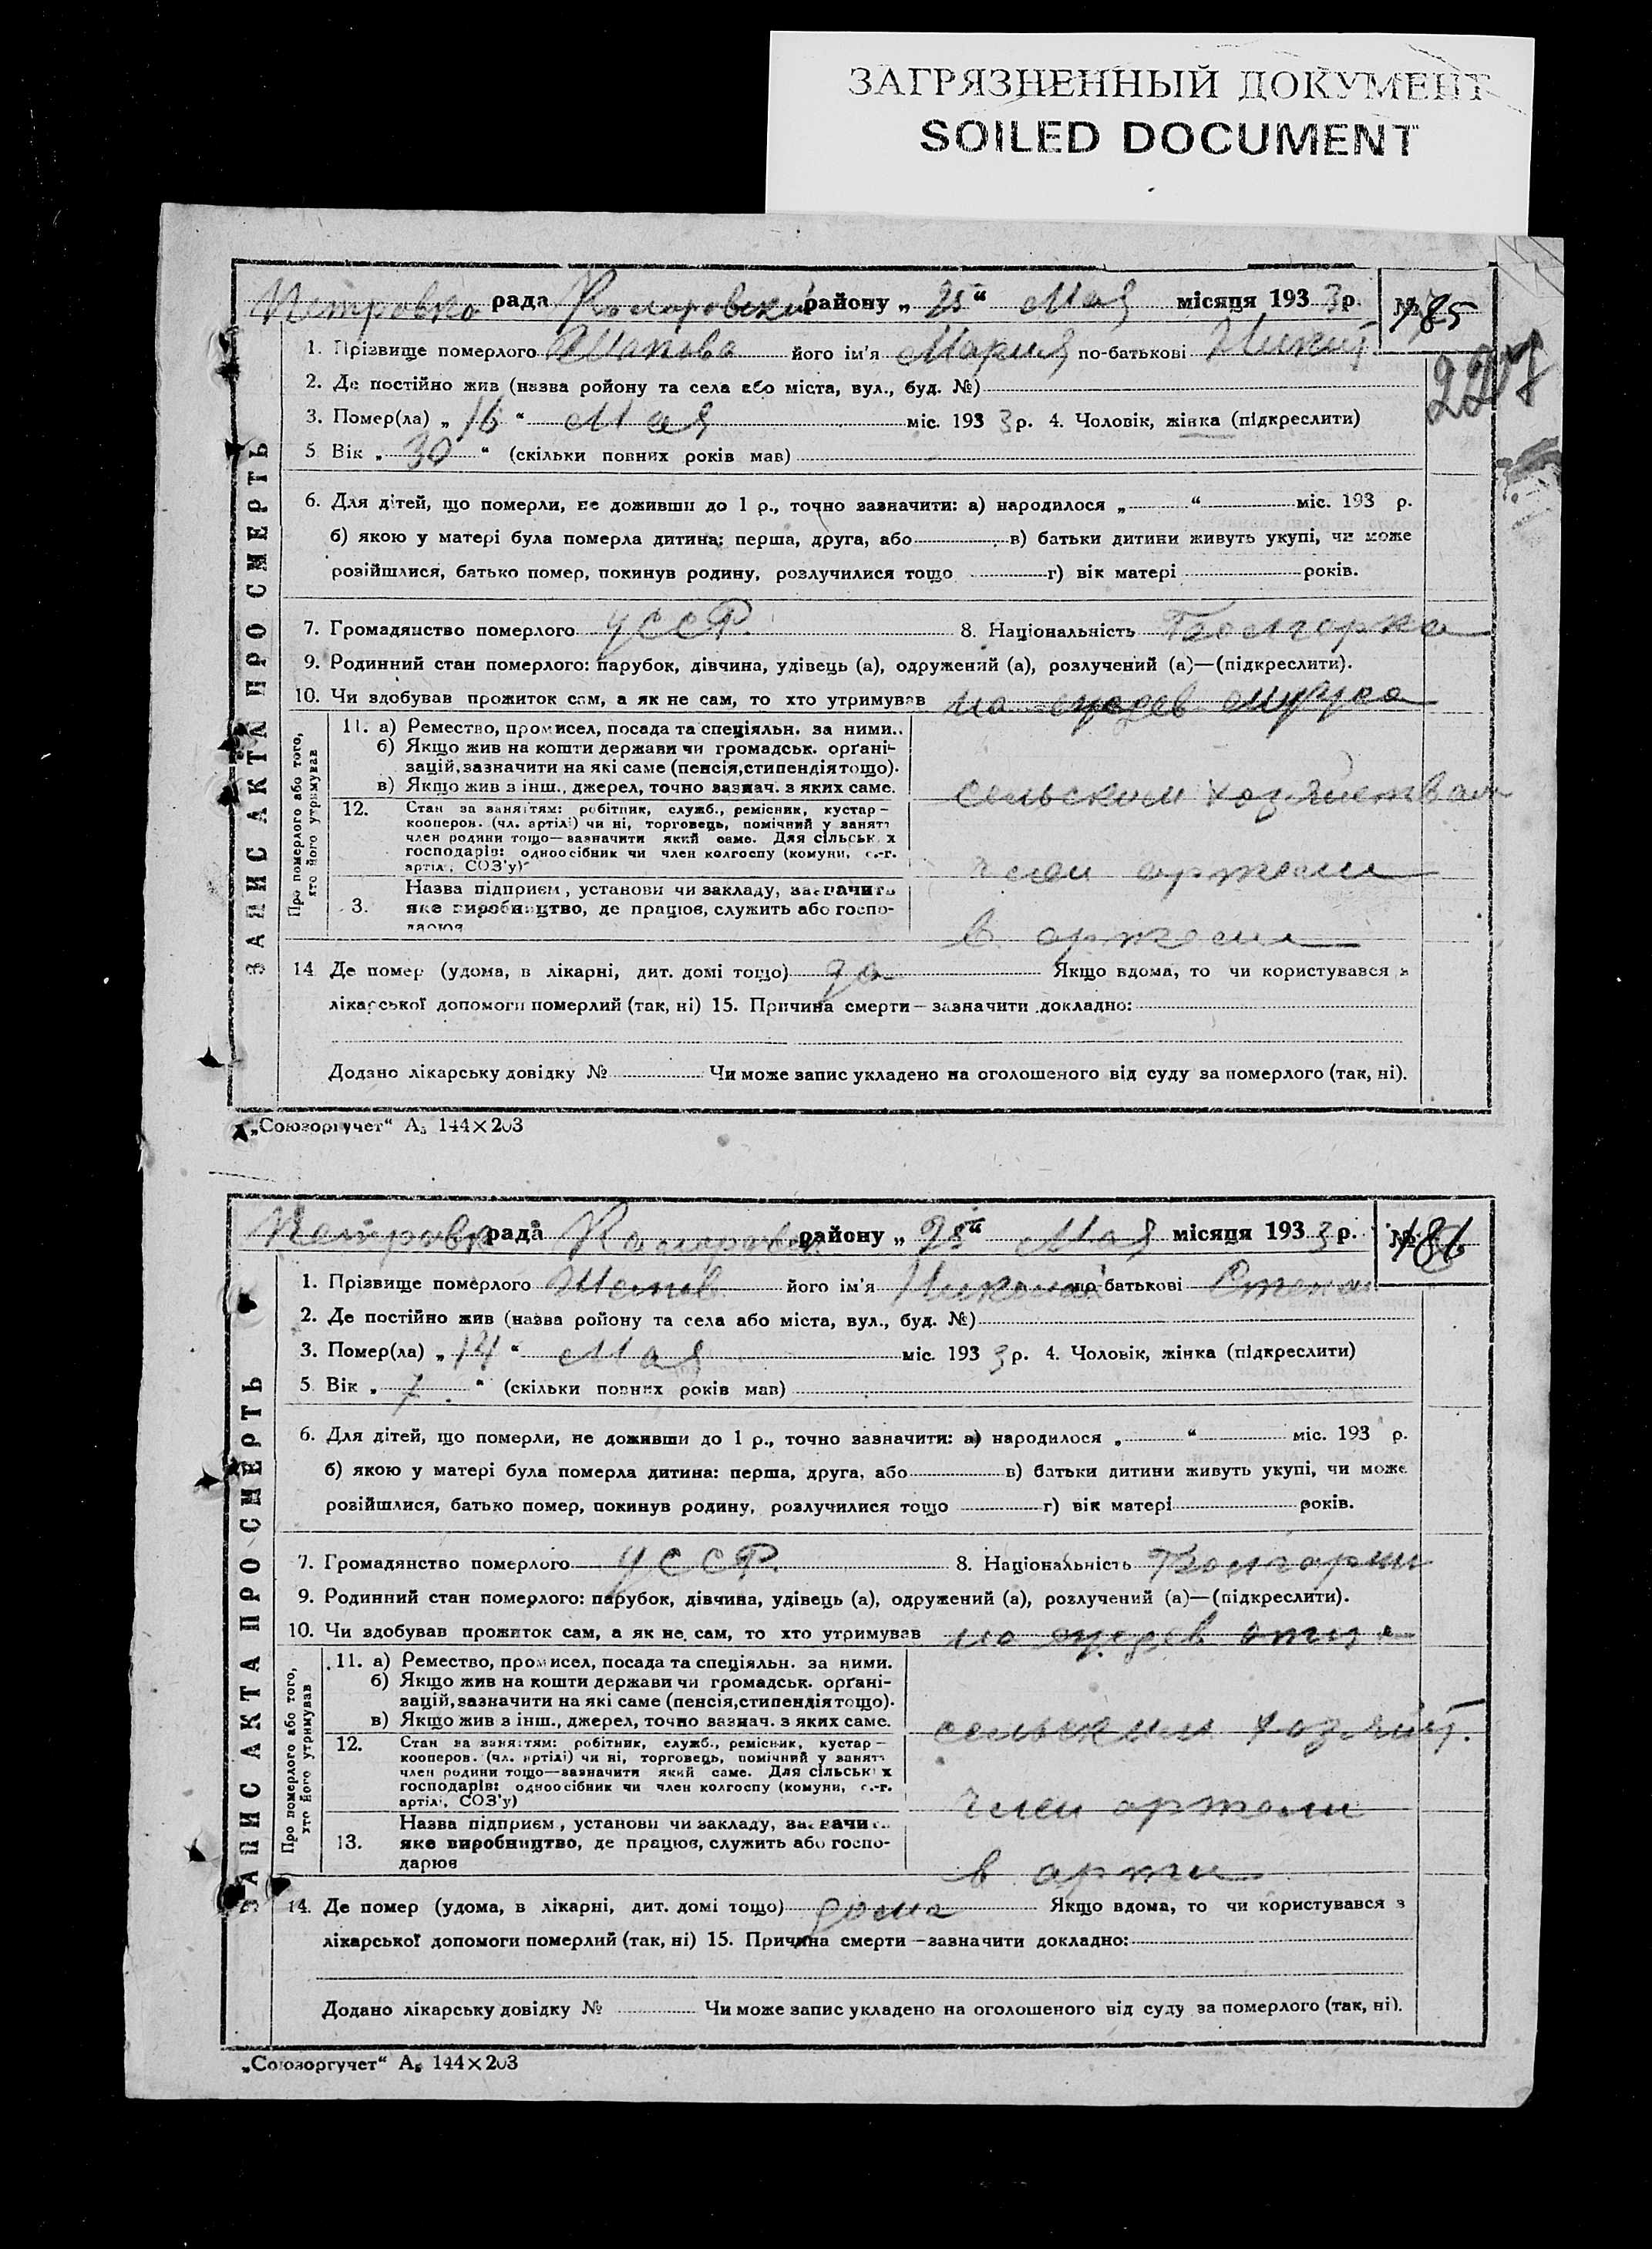 ЗАГРЯЗНЕННЫЙ ДОКУМЕНТ
SOILED DOCUMENT
Петровка рада района „25“ Мая місяця 1933 р. № 185
227
1. Прізвище померлого його ім'я Мария по-батькові
2. Де постійно жив (назва ройону та села або міста, вул., буд. №)
3. Помер(ла) „16“ Мая міс. 1933 р. 4. Чоловік, жінка (підкреслити)
5 Вік „30“ (скільки повних років мав)
6. Для дітей, що померли, не доживши до 1 р., точно зазначити: а) народилося „ “ міс. 193 р.
б) якою у матері була померла дитина: перша, друга, або в) батьки дитини живуть укупі, чи може
розійшлися, батько помер, покинув родину, розлучилися тощо г) вік матері років.
7. Громадянство померлого УССР. 8. Національність Болгарка
9. Родинний стан померлого: парубок, дівчина, удівець (а), одружений (а), розлучений (а)—(підкреслити).
10. Чи здобував прожиток сам, а як не сам, то хто утримував на иждев мужа
ЗАПИС АКТА ПРО СМЕРТЬ
Про померлого або того, хто його утримував
11. а) Ремество, промисел, посада та спеціяльн. за ними..
б) Якщо жив на кошти держави чи громадськ. орґані-
зацій, зазначити на які саме (пенсія, стипендія тощо).
в) Якщо жив з інш., джерел, точно зазнач. з яких саме.
сельским хозяйством
12. Стан за заняттям: робітник, служб., ремісник, кустар—
кооперов. (чл. артілі) чи ні, торговець, помічний у занятт
член родини тощо—зазначити який саме. Для сільськ х
господарів: одноосібник чи член колгоспу (комуни, с.-г.
артілі, СОЗ'у)
член артели
Назва підприєм, установи чи закладу, зазначить
3. яке виробництво, де працює, служить або госпо-
дарює
в артели
14 Де помер (удома, в лікарні, дит. домі тощо) Якщо вдома, то чи користувався з
лікарської допомоги померлий (так, ні) 15. Причина смерти—зазначити докладно:
Додано лікарську довідку № Чи може запис укладено на оголошеного від суду за померлого (так, ні).
„Союзоргучет“ А₅ 144×203
рада району „25“ Мая місяця 1933 р. № 186
1. Прізвище померлого його ім'я Николай по-батькові Степан
2. Де постійно жив (назва ройону та села або міста, вул., буд. №)
3. Помер(ла) „14“ Мая міс. 1933 р. 4. Чоловік, жінка (підкреслити)
5 Вік „7“ (скільки повних років мав)
6. Для дітей, що померли, не доживши до 1 р., точно зазначити: а) народилося „ “ міс. 193 р.
б) якою у матері була померла дитина: перша, друга, або в) батьки дитини живуть укупі, чи може
розійшлися, батько помер, покинув родину, розлучилися тощо г) вік матері років.
7. Громадянство померлого УССР. 8. Національність
9. Родинний стан померлого: парубок, дівчина, удівець (а), одружений (а), розлучений (а)—(підкреслити).
10. Чи здобував прожиток сам, а як не сам, то хто утримував на иждев отца
ЗАПИС АКТА ПРО СМЕРТЬ
Про померлого або того, хто його утримував
11. а) Ремество, промисел, посада та спеціяльн. за ними.
б) Якщо жив на кошти держави чи громадськ. орґані-
зацій, зазначити на які саме (пенсія, стипендія тощо).
в) Якщо жив з інш., джерел, точно зазнач. з яких саме.
сельским хозяйст.
12. Стан за заняттям: робітник, служб., ремісник, кустар—
кооперов. (чл. артілі) чи ні, торговець, помічний у занятт
член родини тощо—зазначити який саме. Для сільськ х
господарів: одноосібник чи член колгоспу (комуни, с.-г.
артілі, СОЗ'у)
член артели
Назва підприєм, установи чи закладу, зазначит
13. яке виробництво, де працює, служить або госпо-
дарює
в
14. Де помер (удома, в лікарні, дит. домі тощо) дома Якщо вдома, то чи користувався з
лікарської допомоги померлий (так, ні) 15. Причина смерти—зазначити докладно:
Додано лікарську довідку № Чи може запис укладено на оголошеного від суду за померлого (так, ні).
„Союзоргучет“ А₅ 144×203